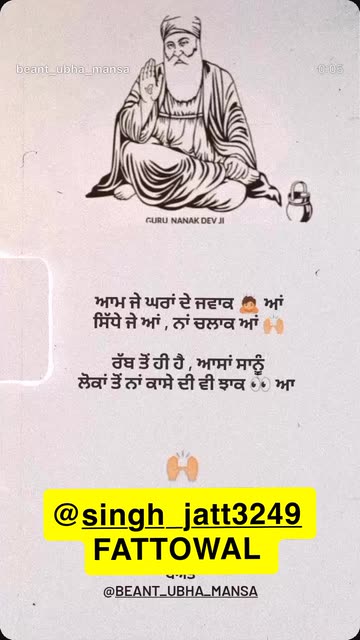 beant_ubha_mansa
0:05
GURU NANAK DEV JI
ਆਮ ਜੇ ਘਰਾਂ ਦੇ ਜਵਾਕ 🙇 ਆਂ
ਸਿੱਧੇ ਜੇ ਆਂ , ਨਾਂ ਚਲਾਕ ਆਂ 🙌🏼
ਰੱਬ ਤੋਂ ਹੀ ਹੈ , ਆਸਾਂ ਸਾਨੂੰ
ਲੋਕਾਂ ਤੋਂ ਨਾਂ ਕਾਸੇ ਦੀ ਵੀ ਝਾਕ 👀 ਆ
🙌🏼
@singh_jatt3249
FATTOWAL
@BEANT_UBHA_MANSA